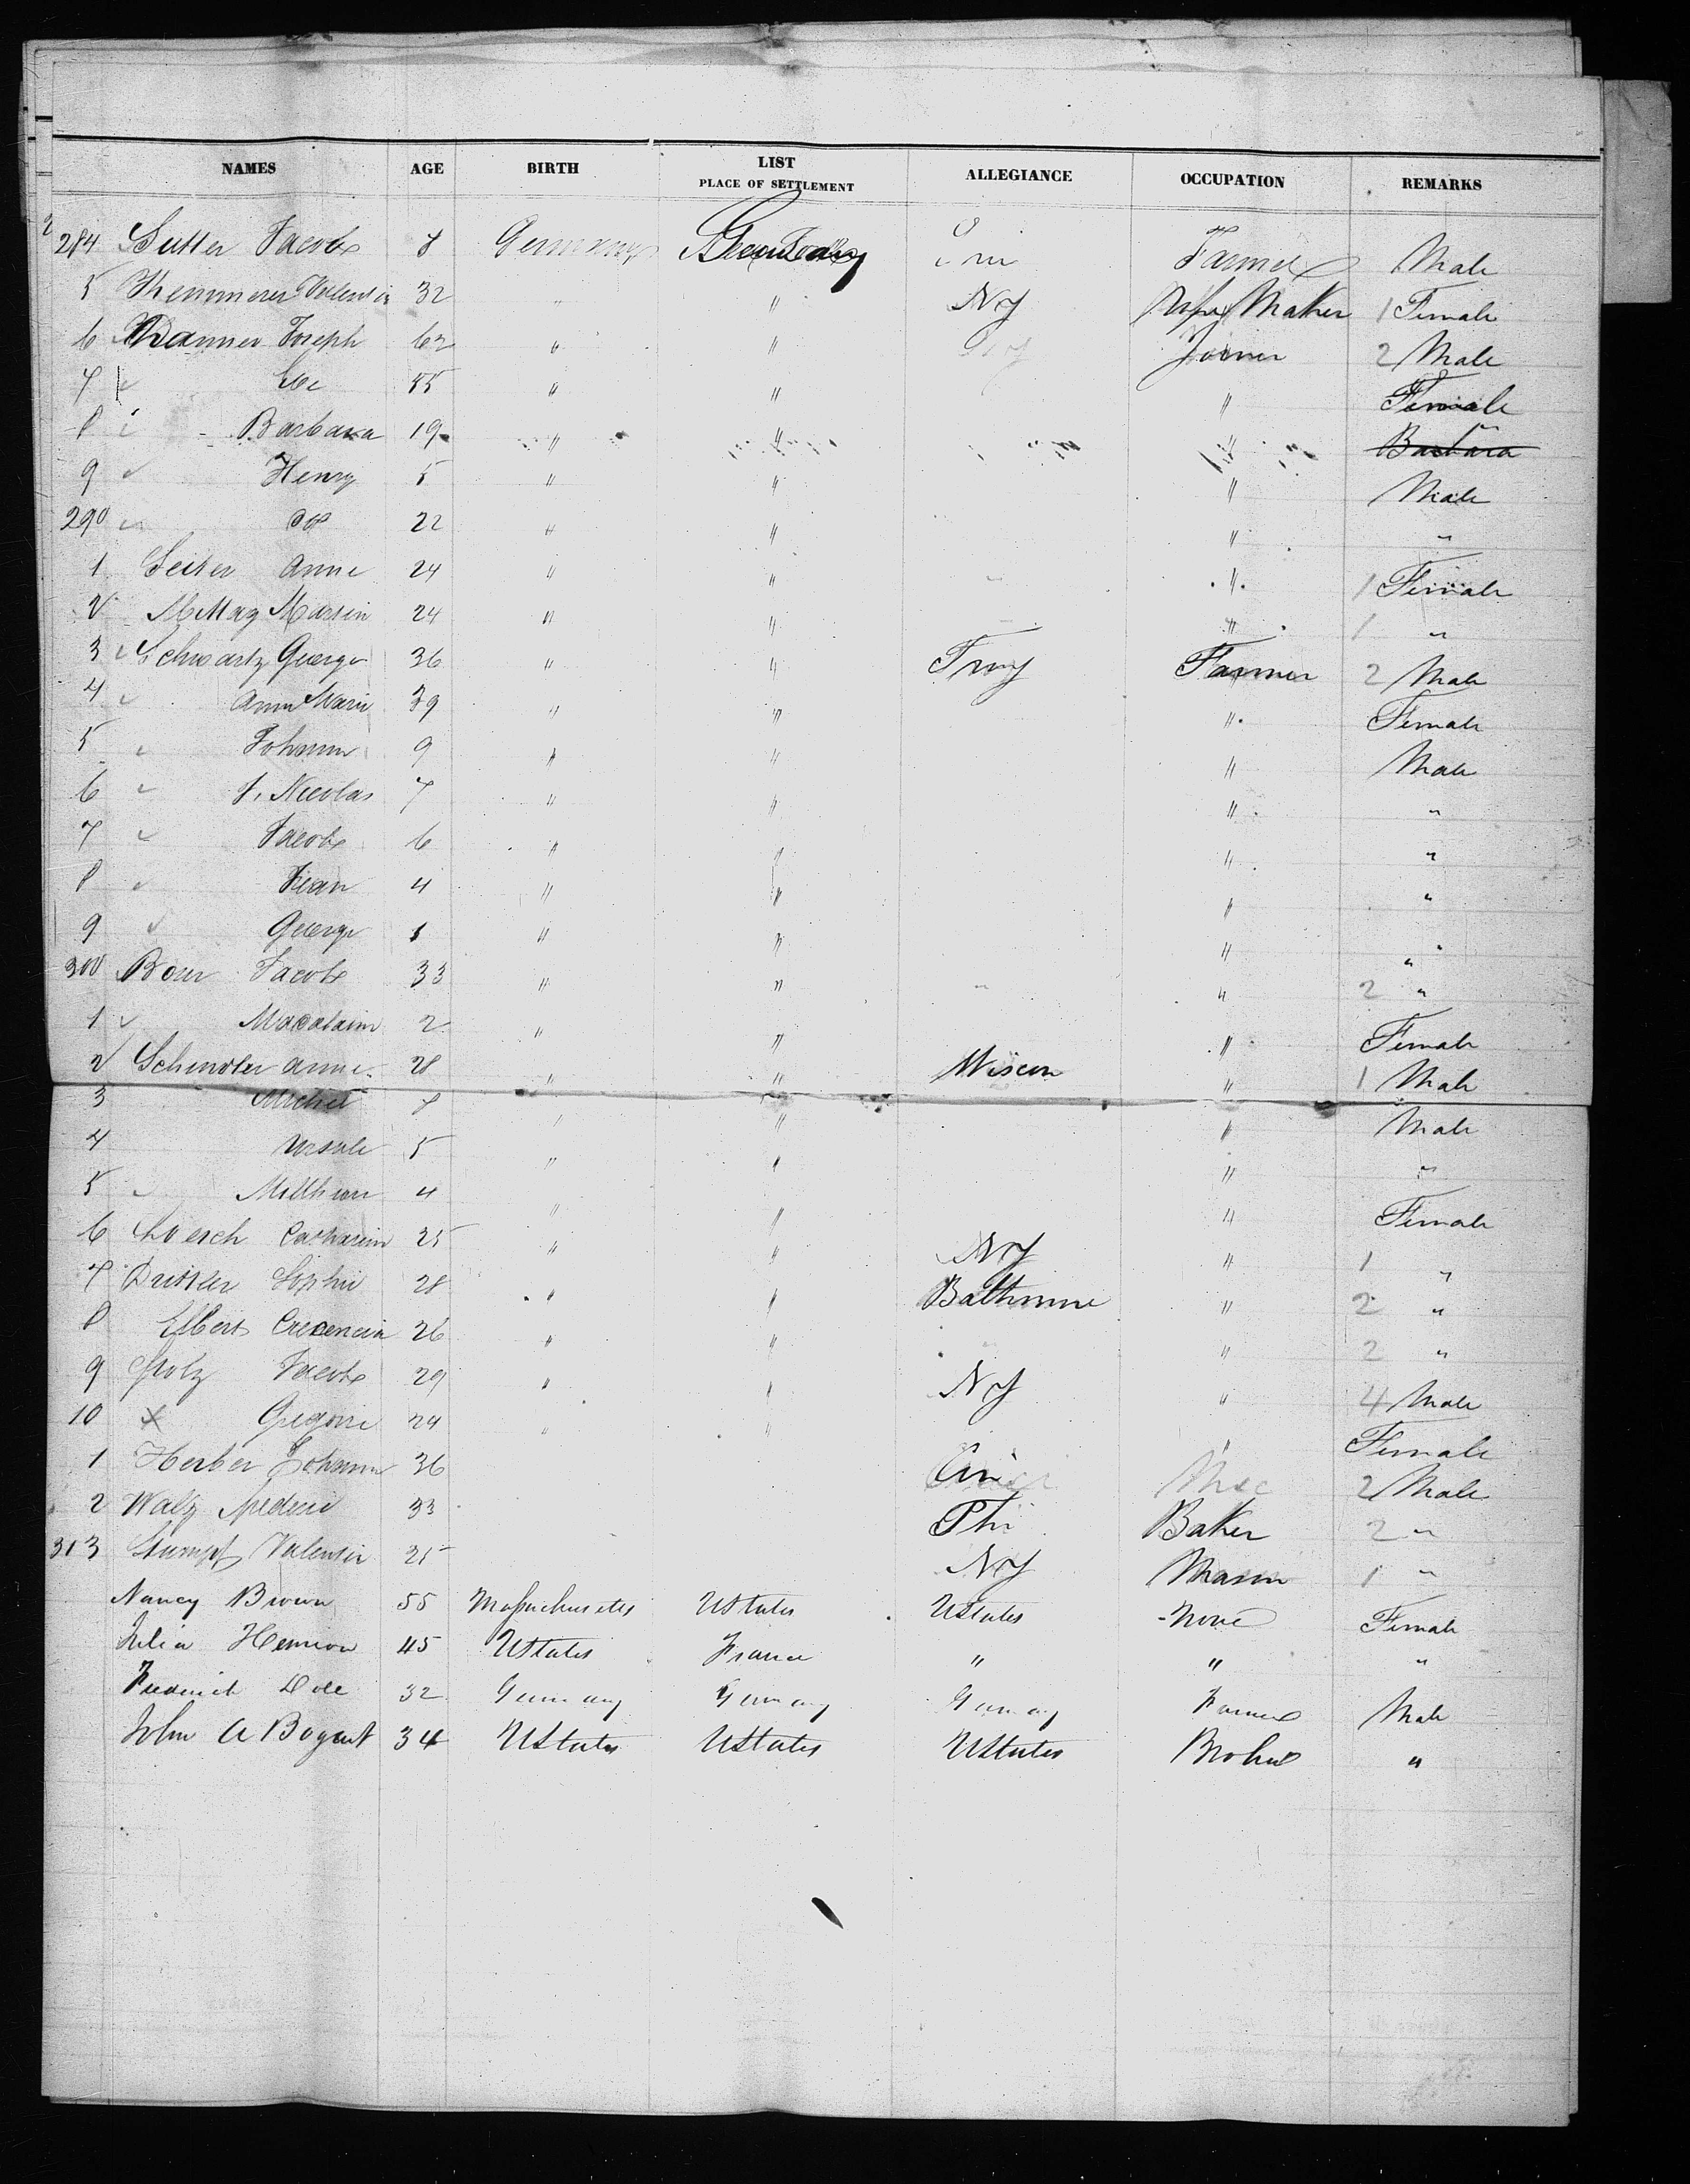 NAMES AGE BIRTH LIST PLACE OF SETTLEMENT ALLEGIANCE OCCUPATION REMARKS
284 Sutter Jacob 8 Germany Farmer Male
5 Kemmerer Valentin 32 " " NY Maker 1 Female
6 Joseph 62 " " Joiner 2 Male
7 55 " " " Female
8 Barbara 19 " " " Barbara
9 Henry 5 " " " Male
290 do 22 " " " "
1 Seiter Anne 24 " " " 1 Female
2 Mittag Martin 24 " " " 1 "
3 Schwartz George 36 " " Troy Farmer 2 Male
4 Ann Marie 39 " " " Female
5 Johann 9 " " " Male
6 J. Nicolas 7 " " " "
7 Jacob 6 " " " "
8 Jean 4 " " " "
9 George 1 " " " "
300 Bour Jacob 33 " " " 2 "
1 2 " " " Female
2 Anne 28 " " Wiscon " 1 Male
3 Michel 7 " " " Male
4 Ursule 5 " " " "
5 4 " " " Female
6 Loesch Catharine 25 " " NY " 1 "
7 Sophie 28 " " Balthimine " 2 "
8 Elbert 26 " " " 2 "
9 Stolz Jacob 29 " " NY " 4 Male
10 Gregoire 24 " " " Female
1 Herber Johann 36 Cin 2 Male
2 Walz 33 Phi Baker 2 "
313 Stumpf Valentin 25 NY Mason 1 "
Nancy Brown 55 Massachusetts UStates UStates None Female
Julia 45 UStates France " " "
Frederick 32 Germany Germany Germany Farmer Male
John A Bogart 34 UStates UStates UStates Broker "